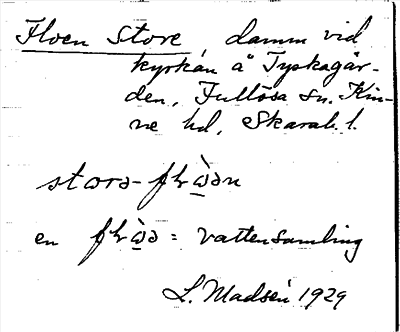 Floen Store damm vid
kyrkan å Tyskagår-
den, Fullösa sn. Kin-
ne hd, Skarab. l.
stora-
en = vattensamling
L. Madsén 1929